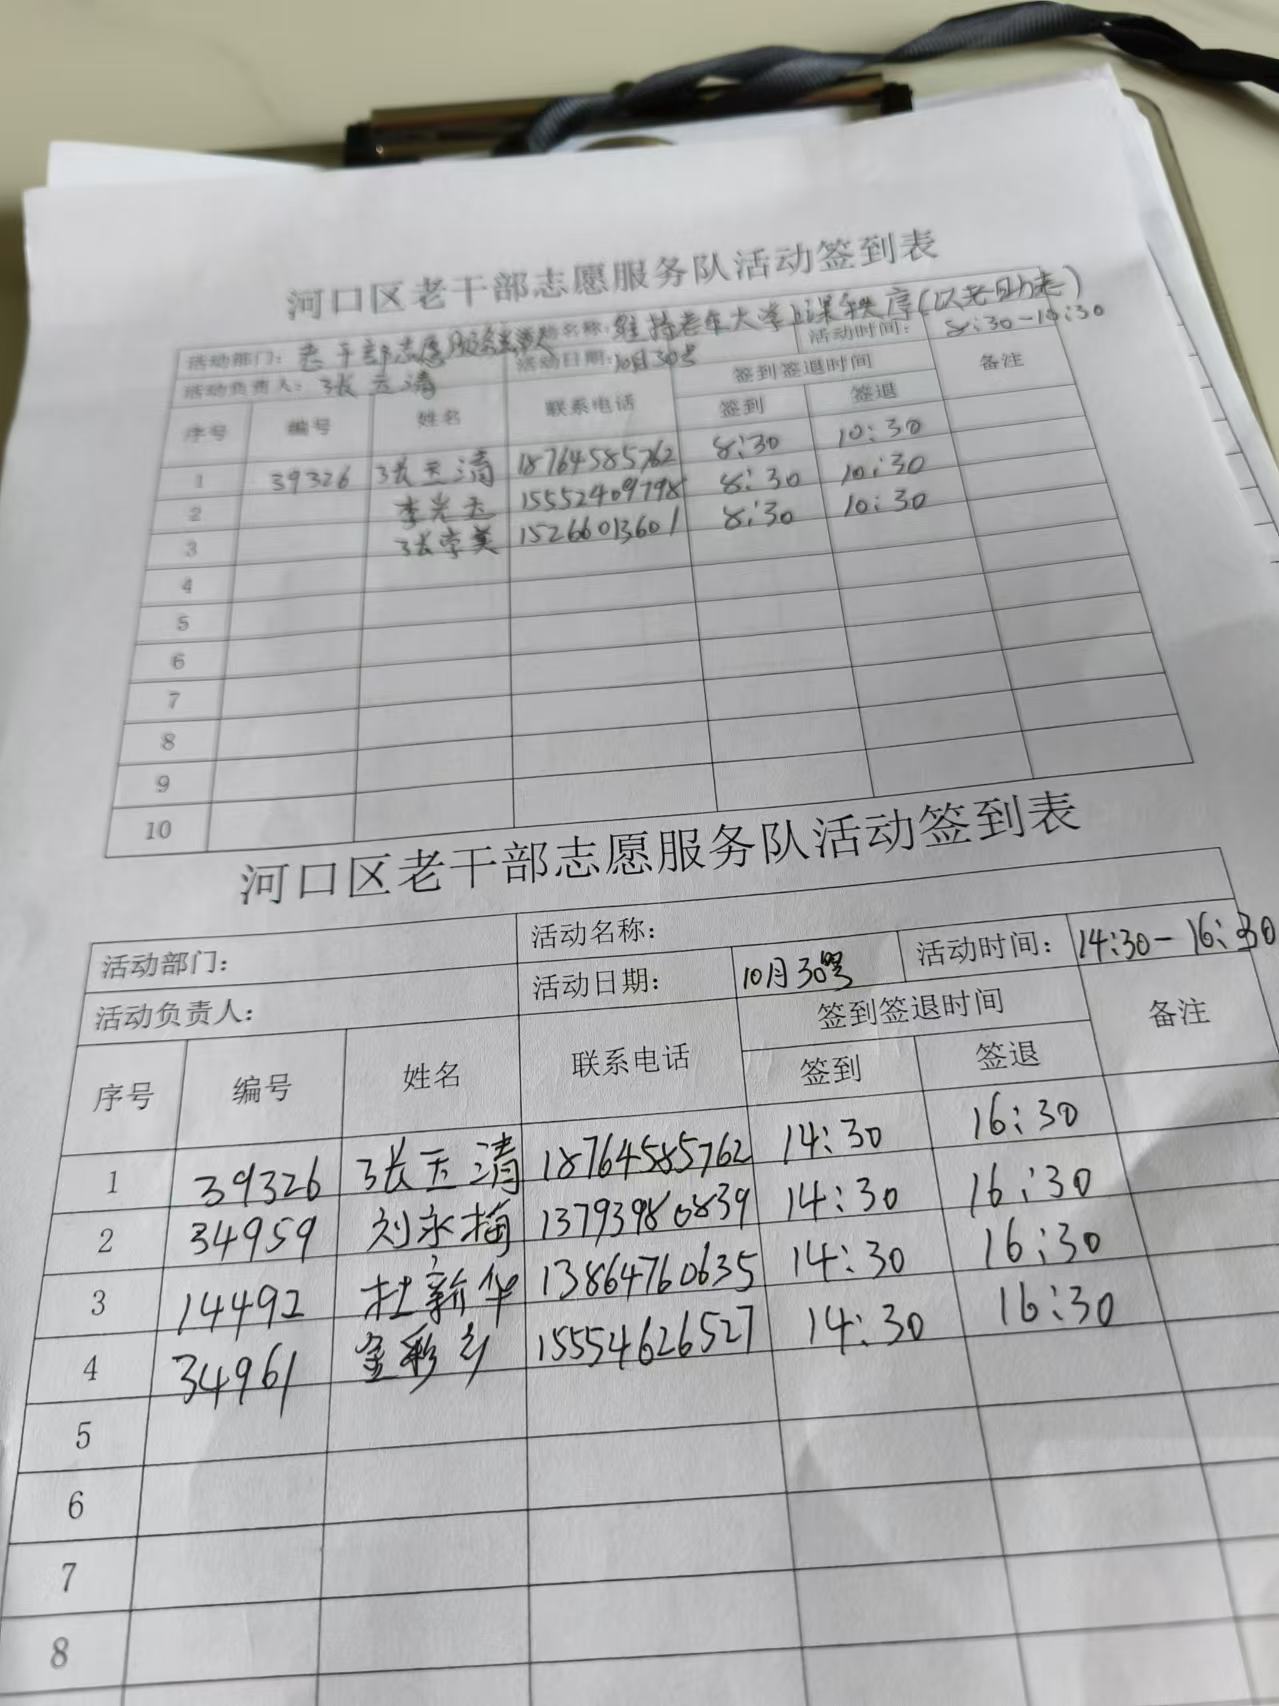 河口区老干部志愿服务队活动签到表
活动部门：老干部志愿服务 活动名称：维持老年大学上课秩序(以老助老)
活动负责人：张玉清 活动日期：10月30号 活动时间：8:30-10:30
序号 编号 姓名 联系电话 签到签退时间 备注
签到 签退
1 39326 张玉清 18764585762 8:30 10:30
2 李光玉 15552409798 8:30 10:30
3 张学美 15266013601 8:30 10:30
4
5
6
7
8
9
10
河口区老干部志愿服务队活动签到表
活动部门： 活动名称：
活动负责人： 活动日期： 10月30号 活动时间： 14:30-16:30
序号 编号 姓名 联系电话 签到签退时间 备注
签到 签退
1 39326 张玉清 18764585762 14:30 16:30
2 34959 刘永梅 13793980839 14:30 16:30
3 14492 杜新华 13864760635 14:30 16:30
4 34961 15554626527 14:30 16:30
5
6
7
8